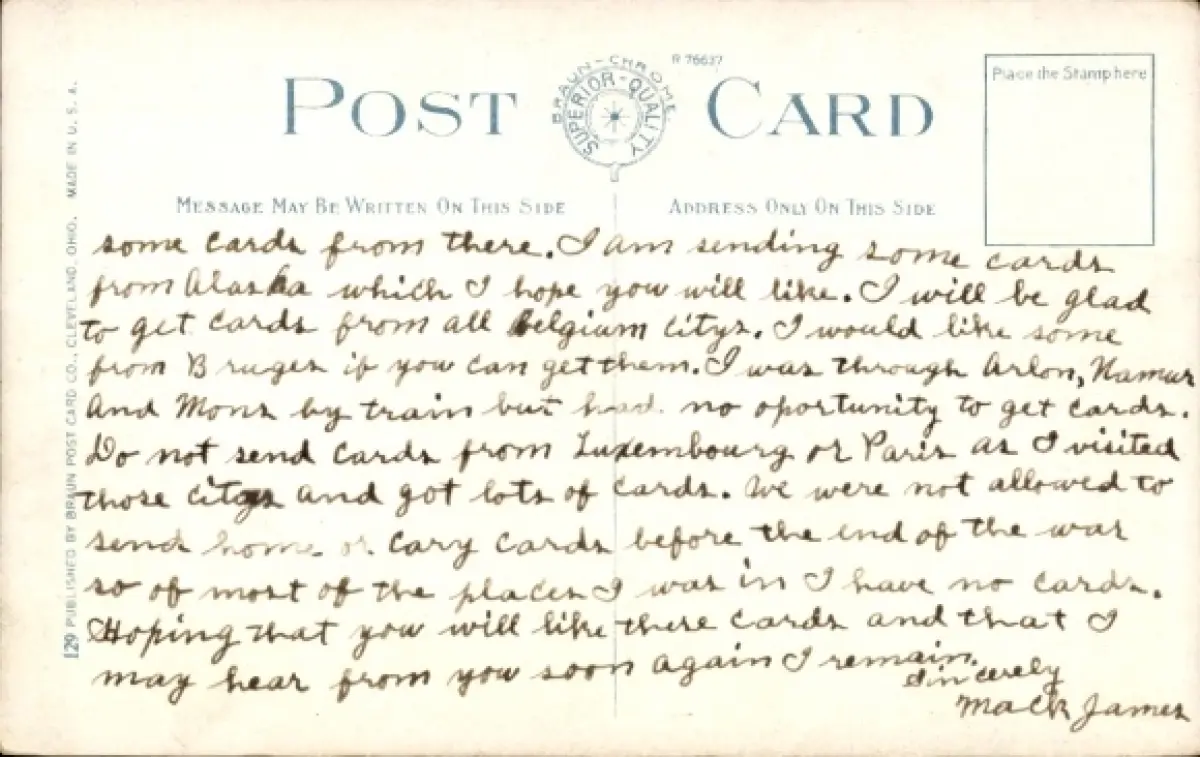 POST CARD
BRAUN-CHROME
SUPERIOR-QUALITY
R 76637
Place the Stamp here
MESSAGE MAY BE WRITTEN ON THIS SIDE
ADDRESS ONLY ON THIS SIDE
129 PUBLISHED BY BRAUN POST CARD CO., CLEVELAND, OHIO. MADE IN U. S. A.
some cards from there. I am sending some cards
from Alaska which I hope you will like. I will be glad
to get cards from all Belgium citys. I would like some
from Bruges if you can get them. I was through Arlon, Namur
and Mons by train but had no oportunity to get cards.
Do not send cards from Luxembourg or Paris as I visited
those citys and got lots of cards. We were not allowed to
send home or cary cards before the end of the war
so of most of the places I was in I have no cards.
Hoping that you will like these cards and that I
may hear from you soon again I remain.
Sincerely
Mack James